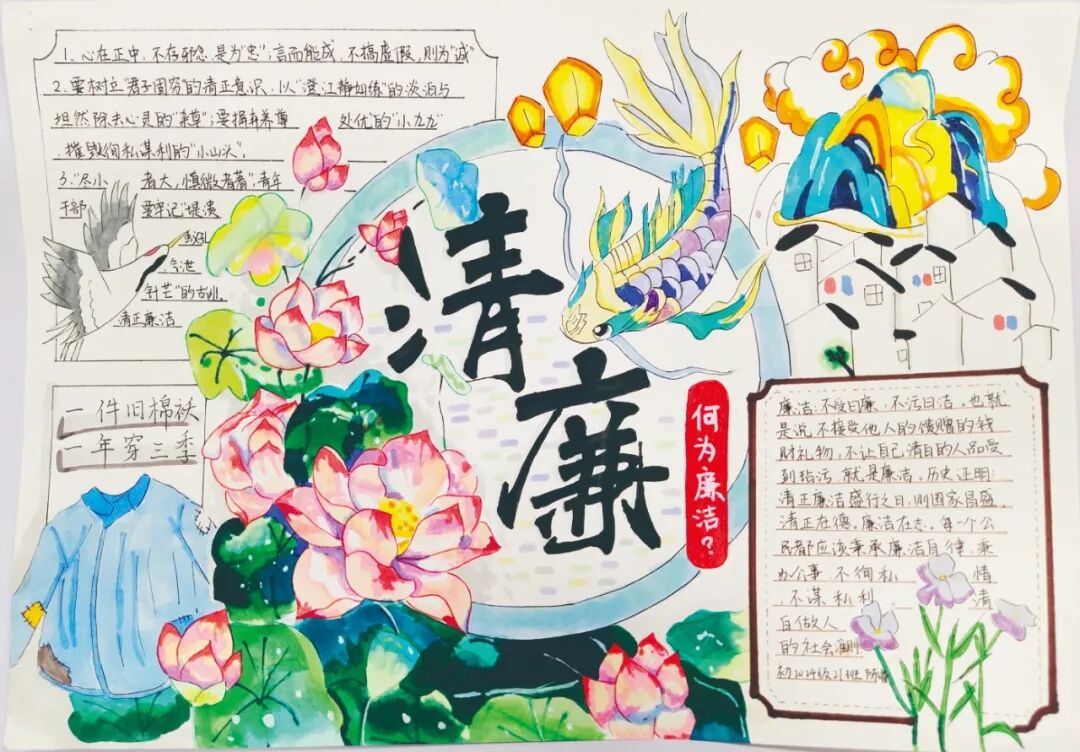 1、心在正中，不存邪念，是为"忠"；言而能成，不搞虚假，则为"诚"
2、要树立"君子固穷"的清正意识，以"澄江静如练"的淡泊与
坦然除去心灵的"杂草"；要摒弃养尊 处优的"小九九"
，摧毁徇私谋利的"小山头"；
3、"尽小 者大，慎微者著"；青年
干部 要牢记"堤溃
蚁孔
，气泄
针芒"的古训。
清正廉洁
一件旧棉袄
一年穿三季
清
廉
何为廉洁？
廉洁：不受曰廉，不污曰洁，也就
是说不接受他人的馈赠的钱
财礼物，不让自己清白的人品受
到玷污，就是廉洁，历史证明：
清正廉洁盛行之日，则国家昌盛，
清正在德。廉洁在志。每一个公
民都应该秉承廉洁自律，秉
办公事，不徇私 情
，不谋私利 清
白做人
的社会准则
初2024级21班 陈